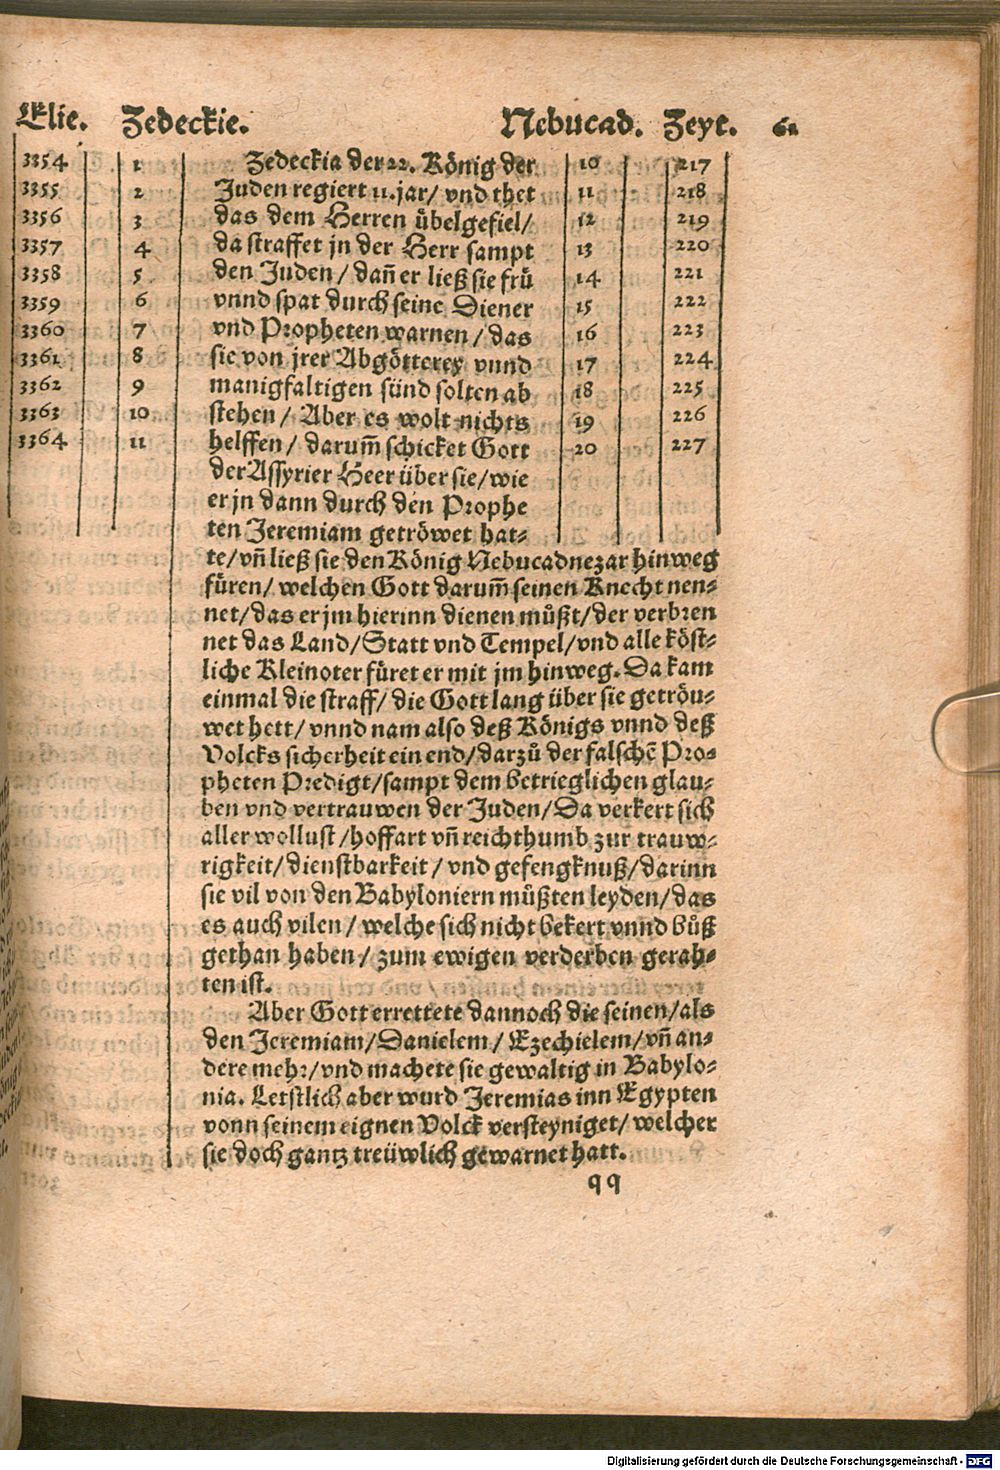 Elie. Zedeckie. Nebucad. Zeyt. 61
3354 1 Zedeckia der 22. König der 10 217
3355 2 Juden regiert 11. jar/ vnd thet 11 218
3356 3 das dem Herren übelgefiel/ 12 219
3357 4 da straffet jn der Herr sampt 13 220
3358 5 den Juden/ dañ er ließ sie frü 14 221
3359 6 vnnd spat durch seine Diener 15 222
3360 7 vnd Propheten warnen/ das 16 223
3361 8 sie von jrer Abgötterey vnnd 17 224
3362 9 manigfaltigen sünd solten ab 18 225
3363 10 stehen/ Aber es wolt nichts 19 226
3364 11 helffen/ darum̃ schicket Gott 20 227
der Assyrier Heer über sie/ wie
er jn dann durch den Prophe
ten Jeremiam getröwet hat-
te/ vñ ließ sie den König Nebucadnezar hinweg
füren/ welchen Gott darum̃ seinen Knecht nen-
net/ das er jm hierinn dienen müßt/ der verbren
net das Land/ Statt vnd Tempel/ vnd alle köst-
liche Kleinoter füret er mit jm hinweg. Da kam
einmal die straff/ die Gott lang über sie getröu-
wet hett/ vnnd nam also deß Königs vnnd deß
Volcks sicherheit ein end/ darzů der falschẽ Pro-
pheten Predigt/ sampt dem betrieglichen glau-
ben vnd vertrauwen der Juden/ Da verkert sich
aller wollust/ hoffart vñ reichthumb zur trauw-
rigkeit/ dienstbarkeit/ vnd gefengknuß/ darinn
sie vil von den Babyloniern müßten leyden/ das
es auch vilen/ welche sich nicht bekert vnnd bůß
gethan haben/ zum ewigen verderben gerah-
ten ist.
Aber Gott errettete dannoch die seinen/ als
den Jeremiam/ Danielem/ Ezechielem/ vñ an-
dere mehr/ vnd machete sie gewaltig in Babylo-
nia. Letstlich aber wurd Jeremias inn Egypten
vonn seinem eignen Volck versteyniget/ welcher
sie doch gantz treüwlich gewarnet hatt.
qq
Digitalisierung gefördert durch die Deutsche Forschungsgemeinschaft - DFG